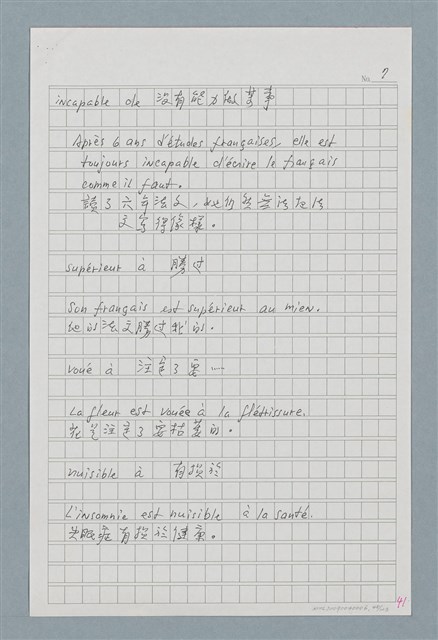 No. 7
incapable de 沒有能力做某事
Après 6 ans d'études françaises, elle est
toujours incapable d'écrire le français
comme il faut.
讀了六年法文，她仍然無法把法
文寫得像樣。
supérieur à 勝过
Son français est supérieur au mien.
他的法文勝过我的。
voué à 注定了要…
La fleur est vouée à la flétrissure.
花是注定了要枯萎的。
nuisible à 有損於
L'insomnie est nuisible à la santé.
失眠症有損於健康。
41